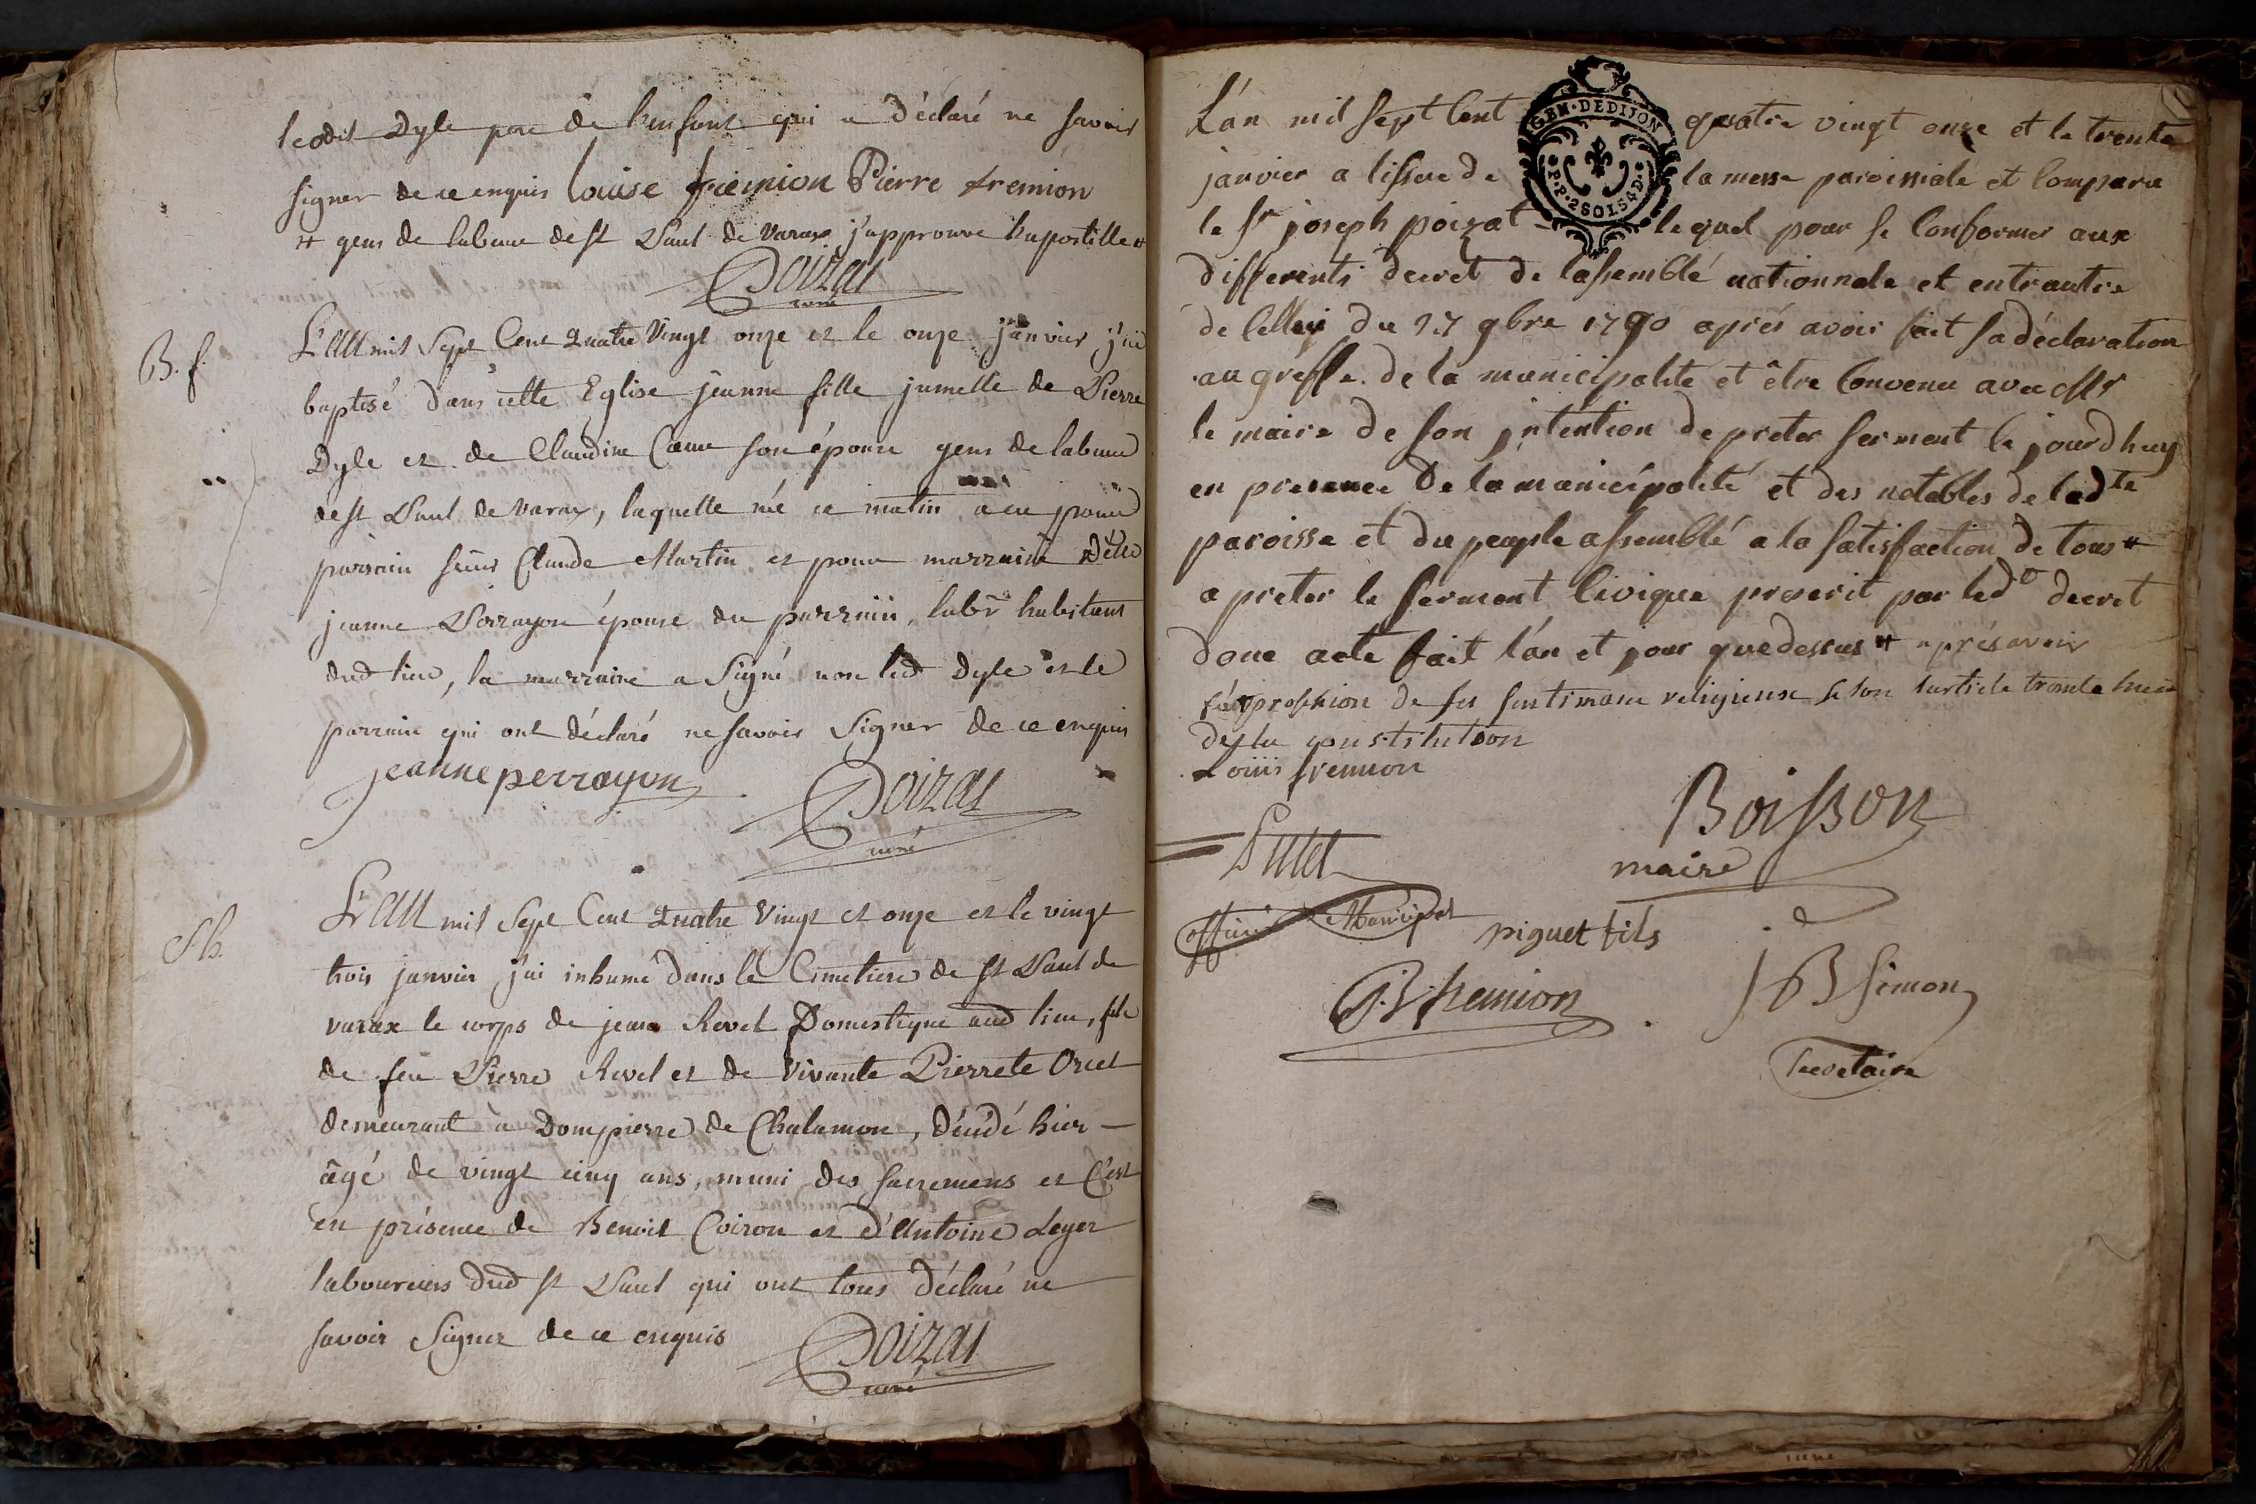 ledit Dyle pere de l'enfant qui a déclaré ne savoir
signer de ce enquis louise fremion Pierre fremion
# gens de labeur de st Paul de varax j'approuve l'apostille #
Poizat
curé
B. f.
L'an mil Sept Cent Quatre Vingt onze et le onze janvier j'ai
baptisé dans cette Eglise jeanne fille jumelle de Pierre
Dyle et de Claudine son épouse gens de labeur
de st Paul de varax, laquelle née ce matin a eu pour
parrain sieur Claude Martin et pour marraine Delle
jeanne Perrayon épouse du parrain, labr habitans
dud lieu, la marraine a Signé non led Dyle et le
parrain qui ont déclaré ne savoir Signer de ce enquis
jeanne perrayon
Poizat
curé
Sh.
L'an mil Sept Cent Quatre Vingt et onze et le vingt
trois janvier j'ai inhumé dans le Cimetiere de st Paul de
varax le corps de jean Revel Domestique aud lieu, fils
de feu Pierre Revel et de Vivante Pierrete Orset
demeurant à Dompierre de Chalamon, décédé hier -
âgé de vingt cinq ans, muni des sacremens et C'est
en présence de Benoit Coiron et d'Antoine Leger
laboureurs dud st Paul qui ont tous déclaré ne
savoir Signer de ce enquis
Poizat
curé
L'an mil sept Cent quatre vingt onze et le trente
GEN. DE DIJON
janvier a lissue de la messe paroissiale et Comparu
le sr joseph poizat lequel pour se Conformer aux
differents decret de lassemblé nationnale et entrautre
de Celluy du 27 9bre 1790 aprés avoir fait sa déclaration
au greffe de la municipalité et être Convenu avec Mr
le maire de son intention de preter serment le jourdhuy
en presence de la municipalité et des notables de ladte
paroisse et du peuple assemblé a la satisfaction de tous #
a preter le serment Civique prescrit par led decret
donc acte fait l'an et jour que dessus # aprés avoir
fait profession de ses sentimans religieuse selon larticle trante huit
de la constitution
Louis fremion
Boisson
maire
Putet
officier Municipal
piguet fils
J.B. fremion
J B Simon
Secretaire